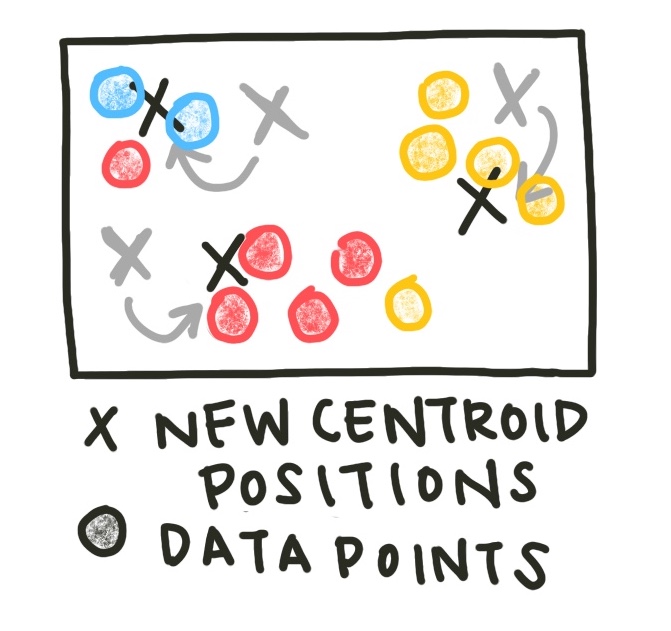 X NEW CENTROID
POSITIONS
DATA POINTS